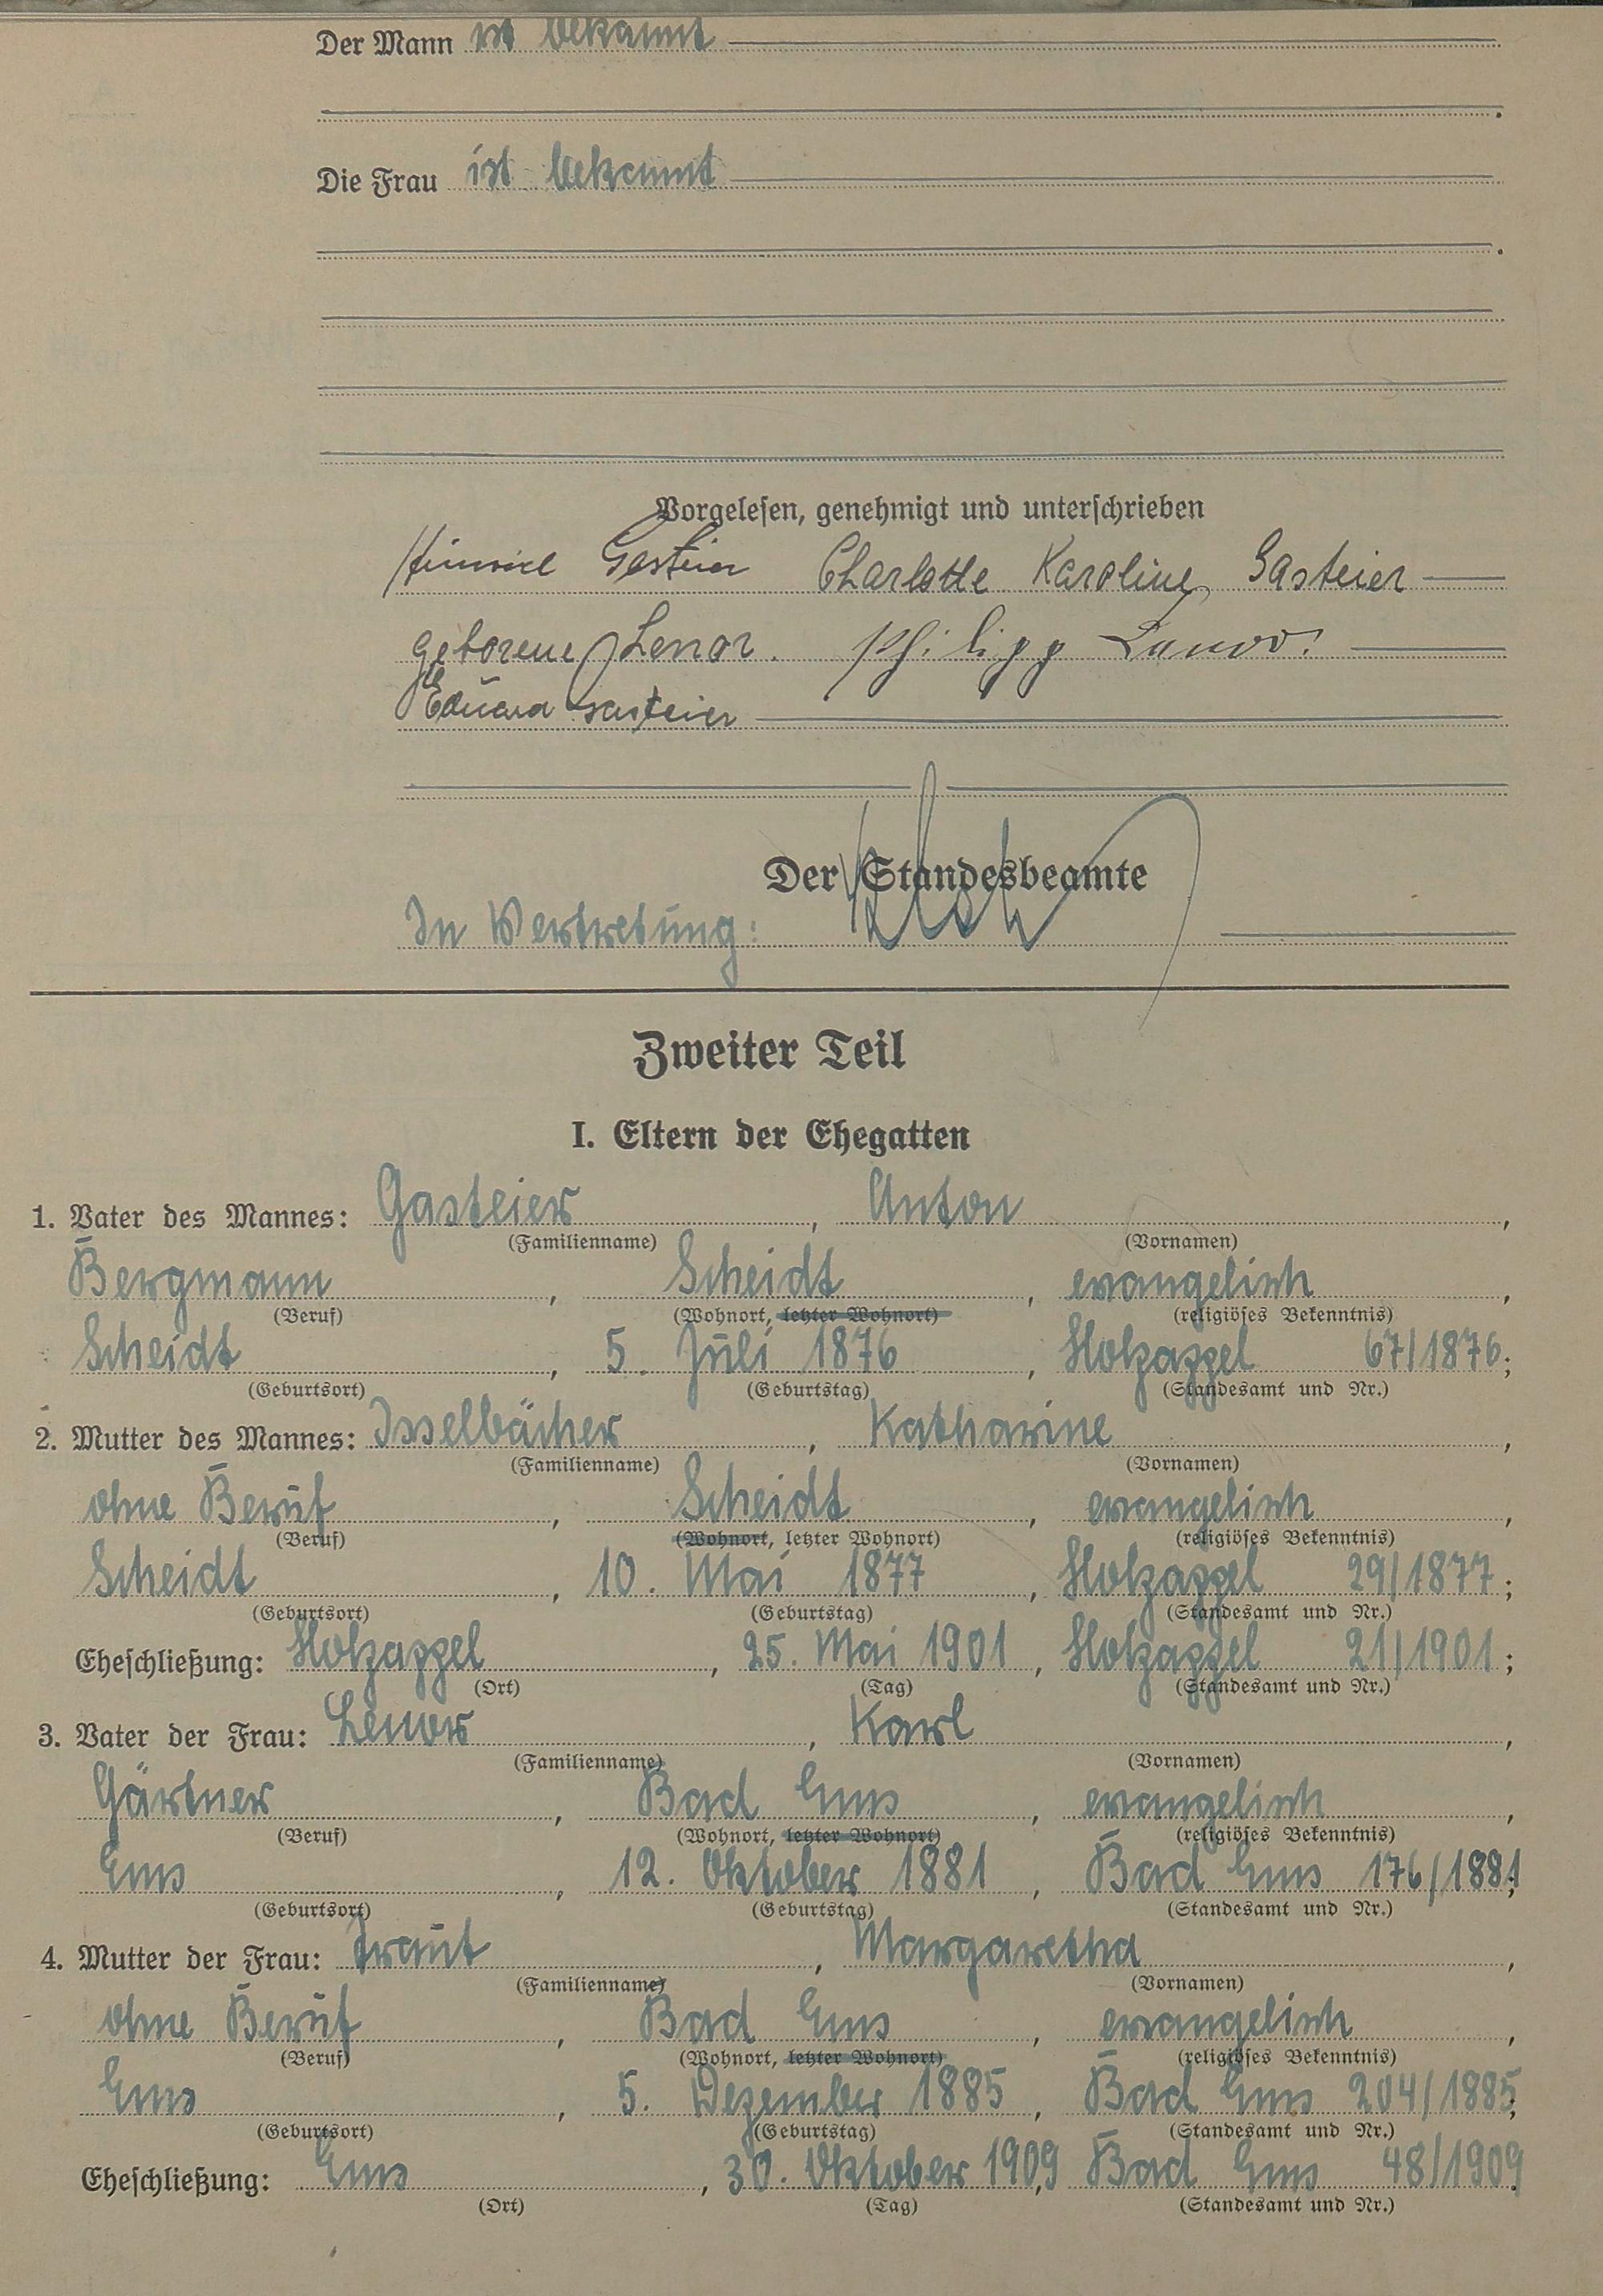 Der Mann ist bekannt
Die Frau ist bekannt
Vorgelesen, genehmigt und unterschrieben
Heinrich Gasteier Charlotte Karoline Gasteier
geborene Lenor. Philipp Lenor.
Eduard Gasteier
Der Standesbeamte
In Vertretung:
Zweiter Teil
I. Eltern der Ehegatten
1. Vater des Mannes: Gasteier, Anton,
(Familienname) (Vornamen)
Bergmann, Scheidt, evangelisch,
(Beruf) (Wohnort, letzter Wohnort) (religiöses Bekenntnis)
Scheidt, 5. Juli 1876, Holzappel 67/1876;
(Geburtsort) (Geburtstag) (Standesamt und Nr.)
2. Mutter des Mannes: Isselbächer, Katharine,
(Familienname) (Vornamen)
ohne Beruf, Scheidt, evangelisch,
(Beruf) (Wohnort, letzter Wohnort) (religiöses Bekenntnis)
Scheidt, 10. Mai 1877, Holzappel 29/1877;
(Geburtsort) (Geburtstag) (Standesamt und Nr.)
Eheschließung: Holzappel, 25. Mai 1901, Holzappel 21/1901;
(Ort) (Tag) (Standesamt und Nr.)
3. Vater der Frau: Lenor, Karl,
(Familienname) (Vornamen)
Gärtner, Bad Ems, evangelisch,
(Beruf) (Wohnort, letzter Wohnort) (religiöses Bekenntnis)
Ems, 12. Oktober 1881, Bad Ems 176/1881;
(Geburtsort) (Geburtstag) (Standesamt und Nr.)
4. Mutter der Frau: Traut, Margaretha,
(Familienname) (Vornamen)
ohne Beruf, Bad Ems, evangelisch,
(Beruf) (Wohnort, letzter Wohnort) (religiöses Bekenntnis)
Ems, 5. Dezember 1885, Bad Ems 204/1885;
(Geburtsort) (Geburtstag) (Standesamt und Nr.)
Eheschließung: Ems, 30. Oktober 1909, Bad Ems 48/1909.
(Ort) (Tag) (Standesamt und Nr.)